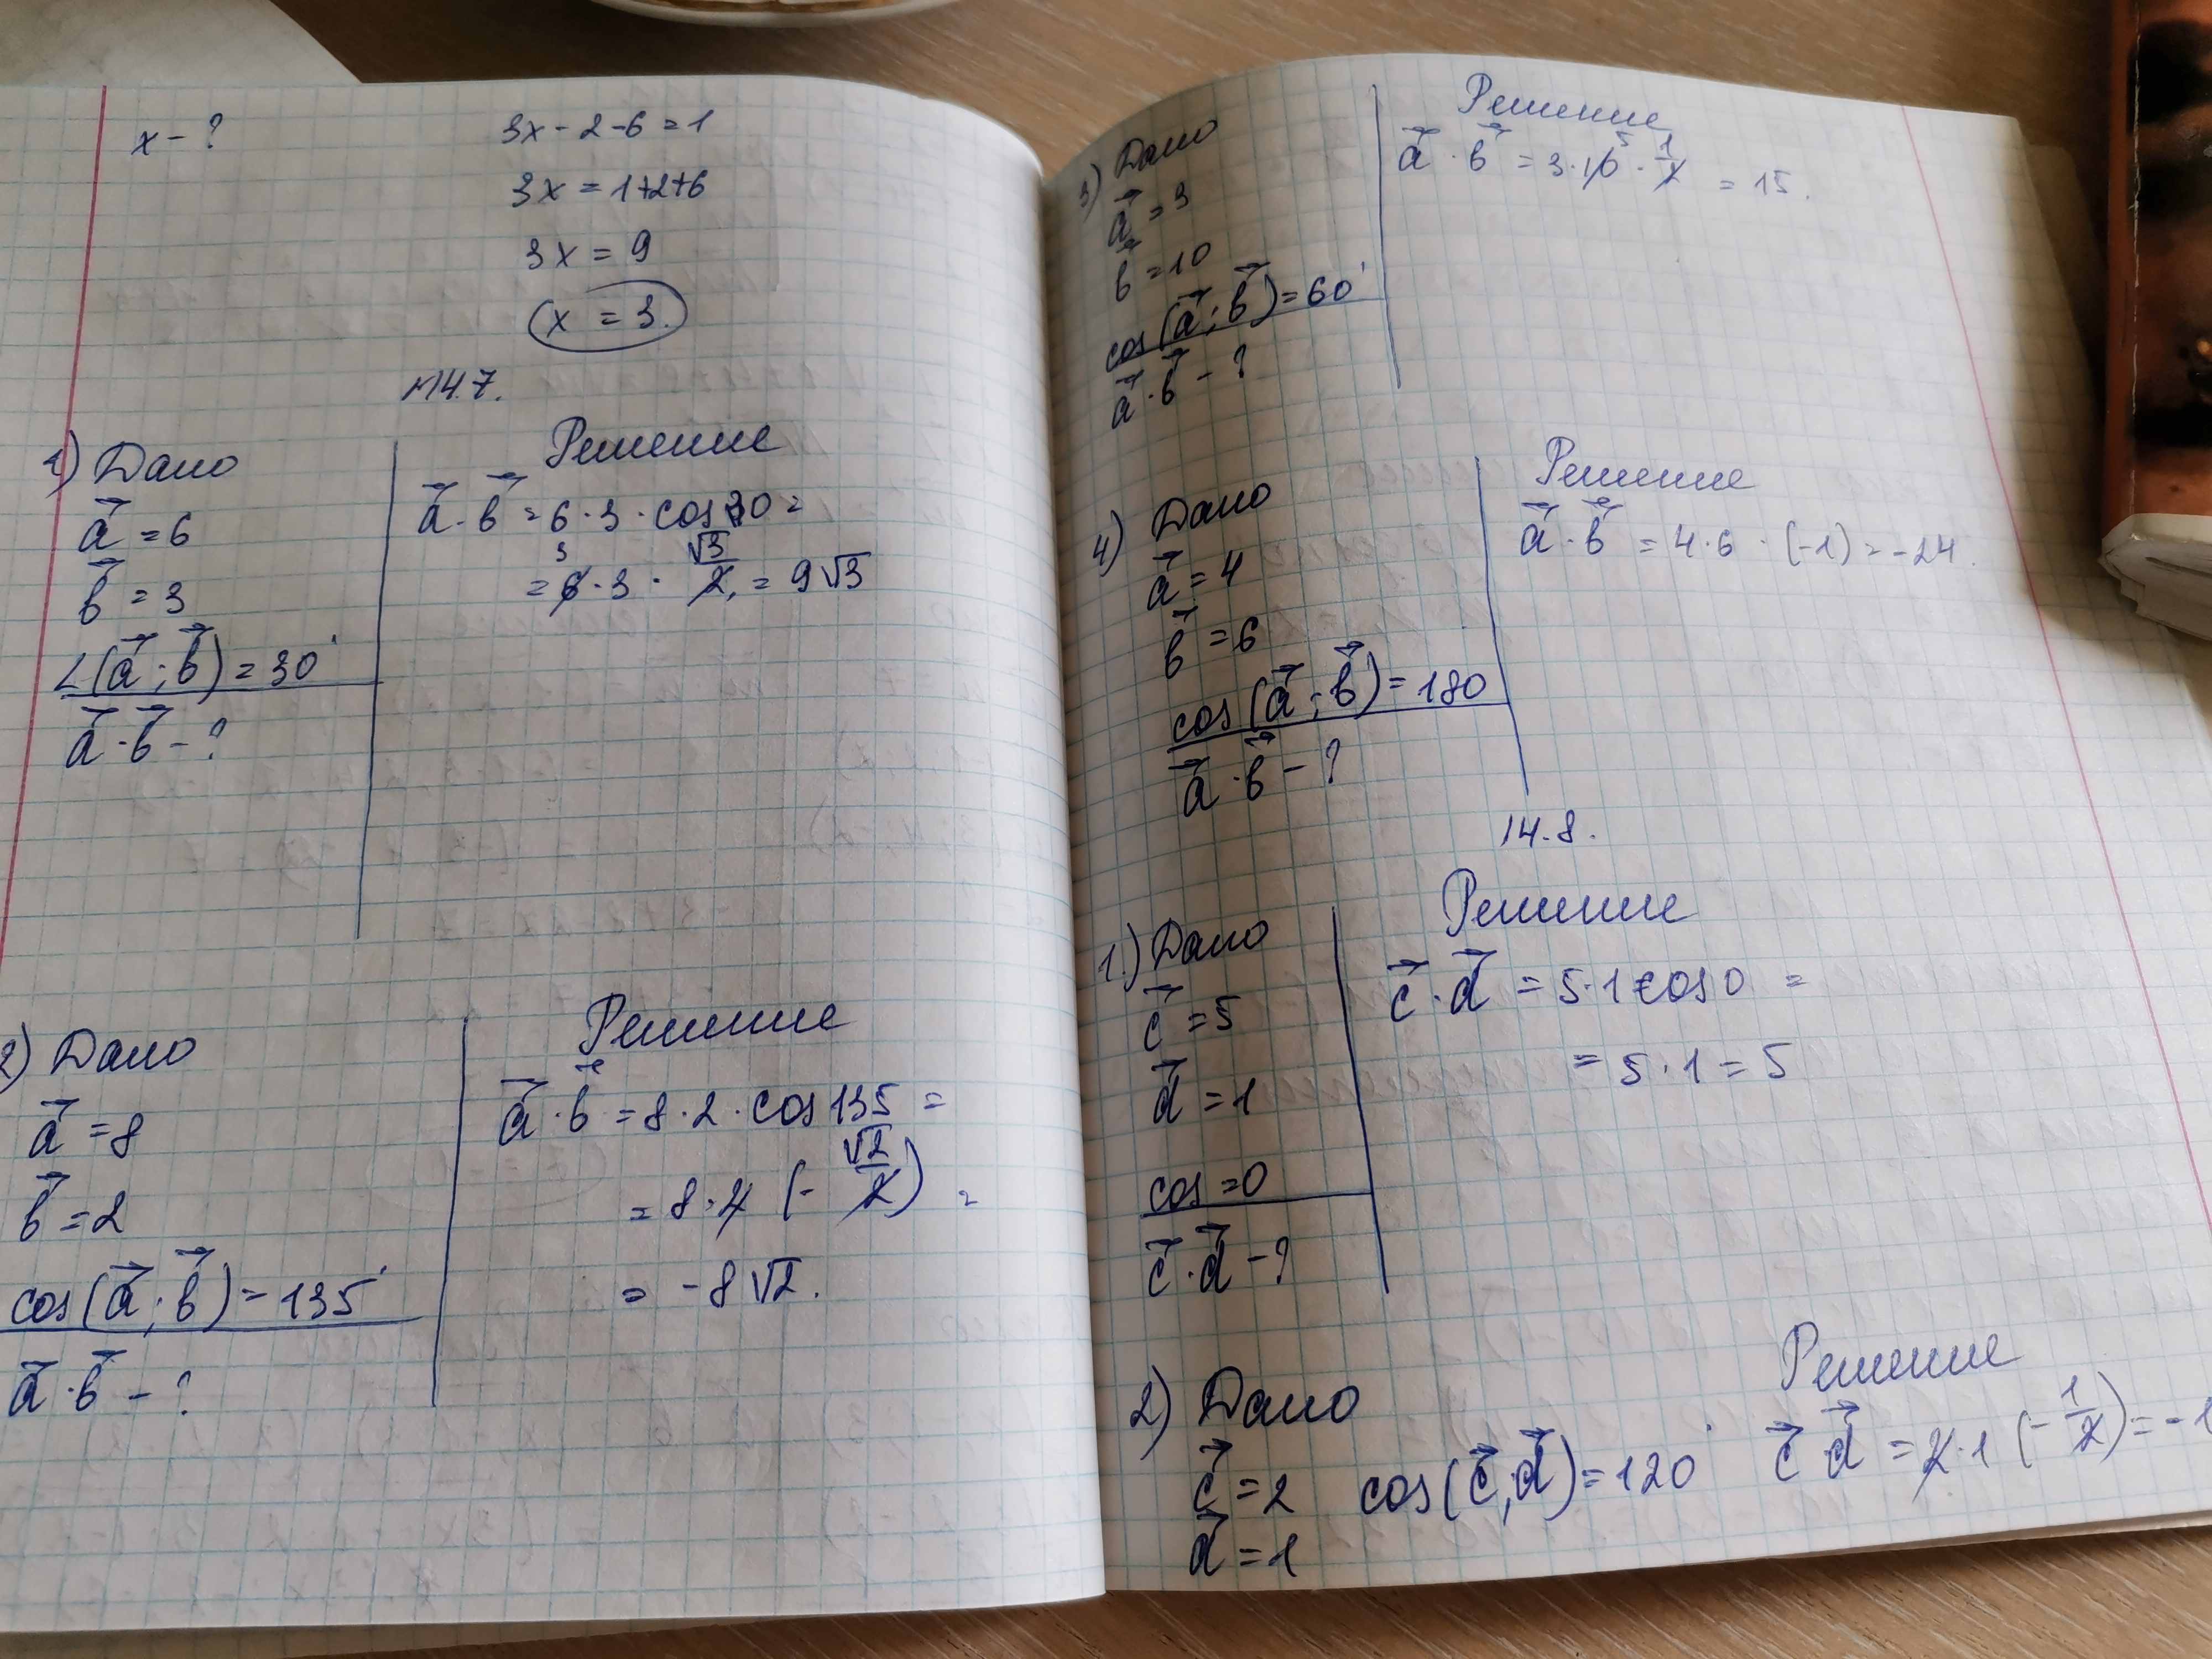 x - ?
3x - 2 - 6 = 1
3x = 1+2+6
3x = 9
x = 3.
№14.7.
1) Дано
a⃗ = 6
b⃗ = 3
∠(a⃗; b⃗) = 30°
a⃗ · b⃗ - ?
Решение
a⃗ · b⃗ = 6 · 3 · cos 30 =
= 6 3 · 3 · √3/2 = 9√3
2) Дано
a⃗ = 8
b⃗ = 2
cos(a⃗; b⃗) = 135°
a⃗ · b⃗ - ?
Решение
a⃗ · b⃗ = 8 · 2 · cos 135 =
= 8 · 2 (- √2/2) =
= -8√2.
3) Дано
a⃗ = 3
b⃗ = 10
cos(a⃗; b⃗) = 60°
a⃗ · b⃗ - ?
Решение
a⃗ · b⃗ = 3 · 10 5 · 1/2 = 15.
4) Дано
a⃗ = 4
b⃗ = 6
cos(a⃗; b⃗) = 180
a⃗ · b⃗ - ?
Решение
a⃗ · b⃗ = 4 · 6 · (-1) = -24.
14.8.
1.) Дано
c⃗ = 5
d⃗ = 1
cos = 0
c⃗ · d⃗ - ?
Решение
c⃗ · d⃗ = 5 · 1 cos 0 =
= 5 · 1 = 5
2) Дано
c⃗ = 2 cos(c⃗, d⃗) = 120°
d⃗ = 1
Решение
c⃗ d⃗ = 2 · 1 (- 1/2) = -1